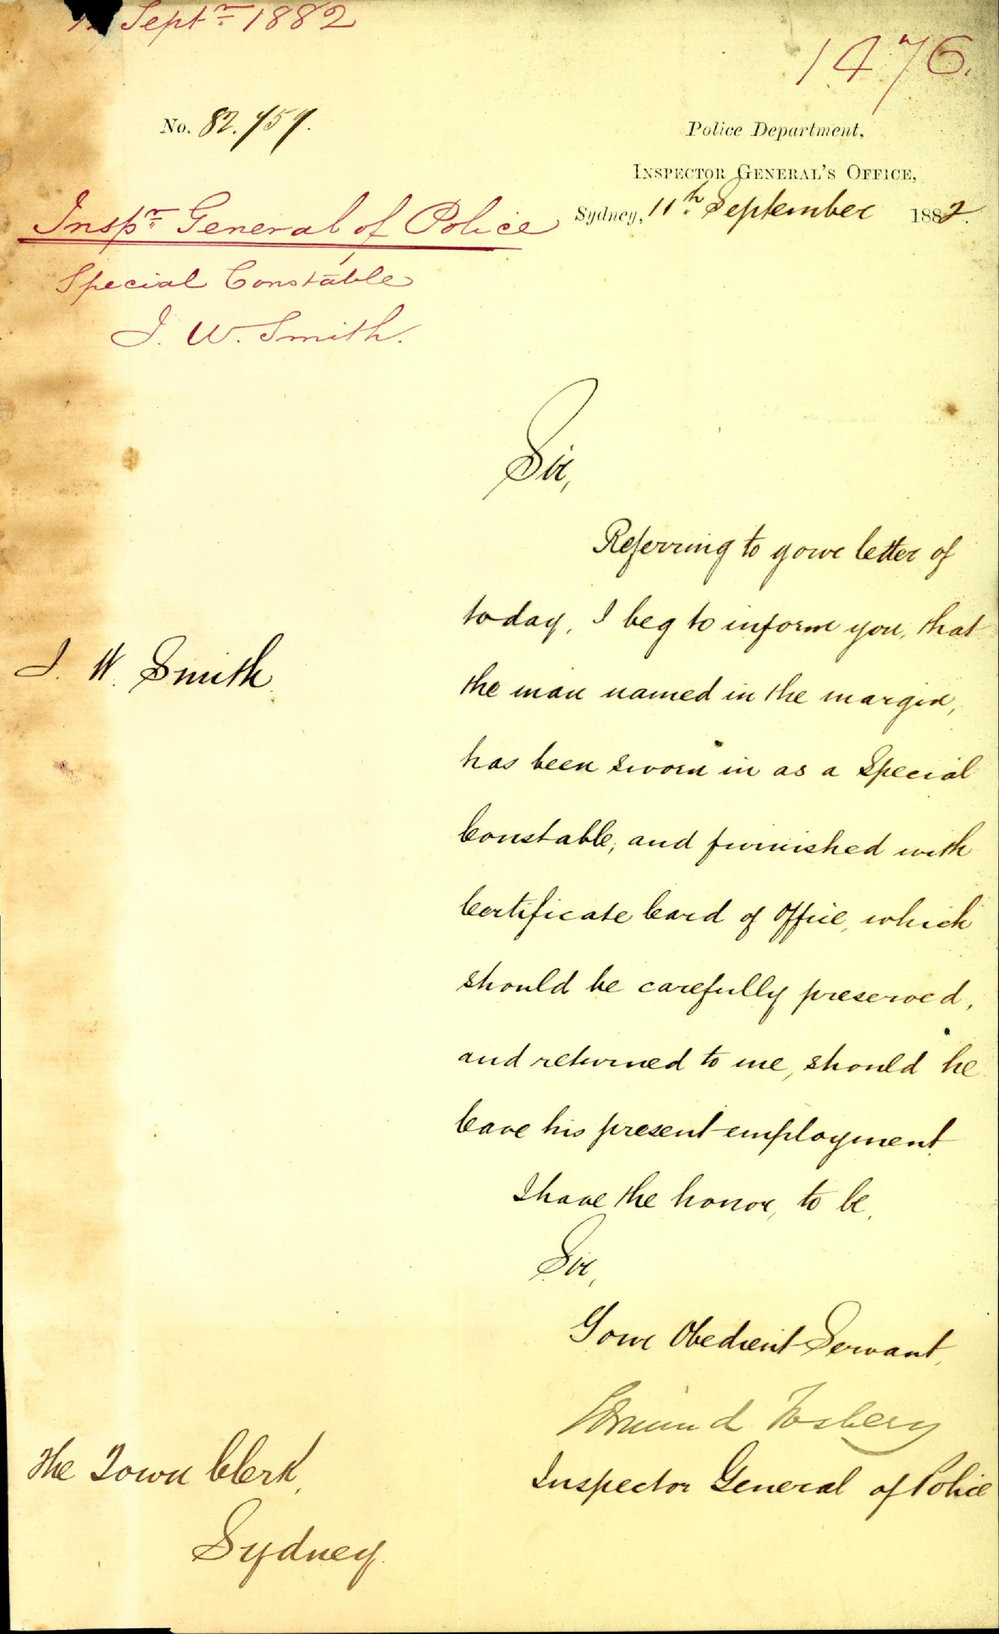 Septr 1882
1476.
No. 82.759.
Police Department,
INSPECTOR GENERAL'S OFFICE,
Sydney, 11th September 1882.
Inspr General of Police
Special Constable
J. W. Smith.
Sir,
Referring to your letter of
today, I beg to inform you, that
J. W. Smith
the man named in the margin,
has been sworn in as a Special
Constable, and furnished with
Certificate Card of Office, which
should be carefully preserved,
and returned to me, should he
leave his present employment
I have the honor, to be,
Sir,
Your Obedient Servant,
Edmund Fosbery
Inspector General of Police
The Town Clerk,
Sydney.